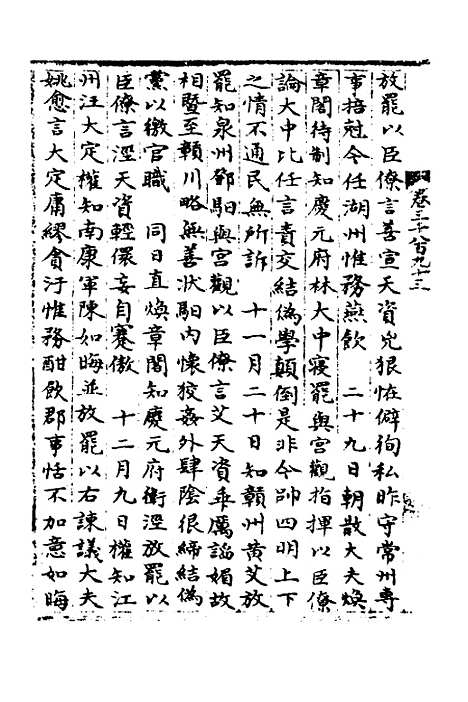 卷三千八百九十三
放罷以臣僚言善宣天資兇狠恠僻徇私昨守常州專
事掊尅今任湖州惟務燕飲　二十九日朝散大夫煥
章閣待制知慶元府林大中寢罷與宮觀指揮以臣僚
論大中比任言責交結偽學顛倒是非今帥四明上下
之情不通民無所訴　十一月二十日知贛州黃艾放
罷知泉州鄧馹與宮觀以臣僚言艾天資乖厲謟媚故
相暨至贛川略無善狀馹内懷狡姦外肆陰很締結偽
黨以緻官職　同日直煥章閣知慶元府衛涇放罷以
臣僚言涇天資輕儇妄自蹇傲　十二月九日權知江
州汪大定權知南康軍陳如晦並放罷以右諫議大夫
姚愈言大定庸繆貪汙惟務酣飲郡事恬不加意如晦